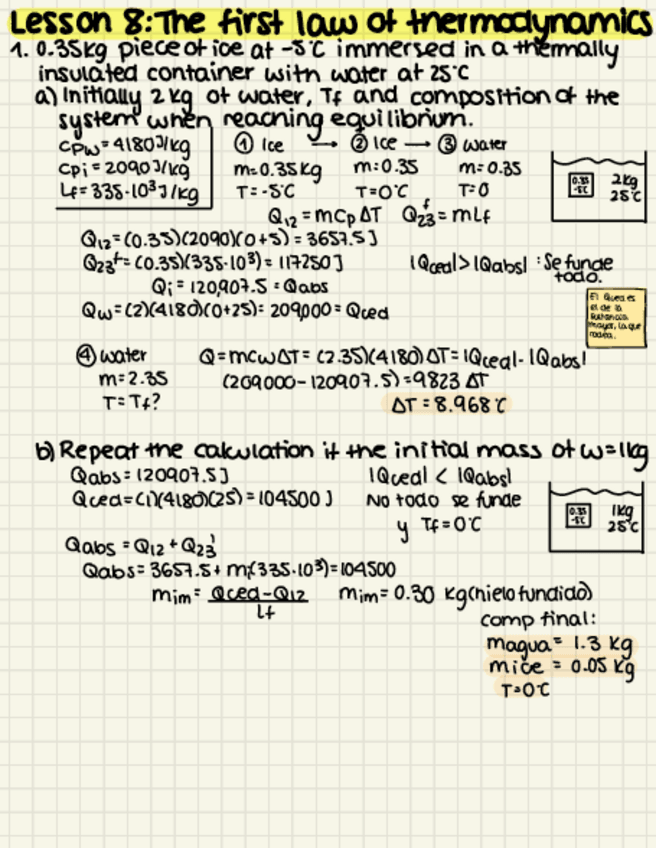 Lesson 8: The first law of thermodynamics
1. 0.35kg piece of ice at -5°C immersed in a thermally
insulated container with water at 25°C
a) Initially 2 kg of water, Tf and composition of the
system when reaching equilibrium.
cpw = 4180 J/kg
cpi = 2090 J/kg
Lf = 335·10³ J/kg
① Ice → ② Ice → ③ water
m=0.35kg m=0.35 m=0.35
T=-5°C T=0°C T=0
0.35 -5°C 2kg 25°C
Q12 = mCpΔT Q23f = mLf
Q12 = (0.35)(2090)(0+5) = 3657.5 J
Q23f = (0.35)(335·10³) = 117250 J |Qced| > |Qabs| : Se funde todo.
Qi = 120,907.5 = Qabs
Qw = (2)(4180)(0+25) = 209,000 = Qced
El Qced es
el de la
sustancia
mayor, la que
rodea.
④ water Q = mcwΔT = (2.35)(4180)ΔT = |Qced| - |Qabs|
m=2.35 (209000-120907.5) = 9823 ΔT
T=Tf? ΔT = 8.968°C
b) Repeat the calculation if the initial mass of w=1kg
Qabs = 120907.5 J |Qced| < |Qabs|
Qced = (1)(4180)(25) = 104500 J No todo se funde
y Tf = 0°C
0.35 -5°C 1kg 25°C
Qabs = Q12 + Q23'
Qabs = 3657.5 + mi(335·10³) = 104500
mim = Qced - Q12 / Lf mim = 0.30 kg (hielo fundido)
comp final:
magua = 1.3 kg
mice = 0.05 kg
T=0°C